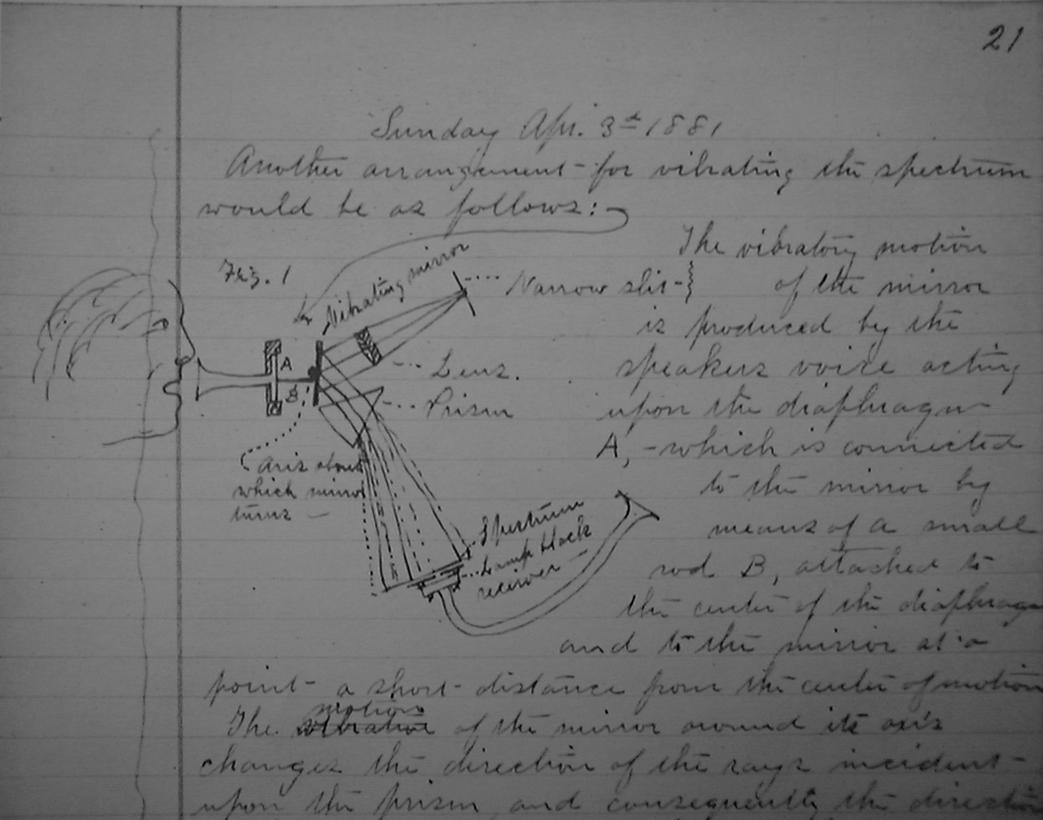 21
Sunday Apr. 3rd 1881
Another arrangement for vibrating the spectrum
would be as follows:
Fig. 1
Vibrating mirror
Narrow slit
Lens.
Prism
A
B
Axis about
which mirror
turns
Spectrum
Lampblack
receiver
The vibratory motion
of the mirror
is produced by the
speakers voice acting
upon the diaphragm
A, - which is connected
to the mirror by
means of a small
rod B, attached to
the center of the diaphragm
and to the mirror at a
point a short distance from the center of motion
motion
The vibration of the mirror around its axis
changes the direction of the rays incident
upon the prism, and consequently the direction